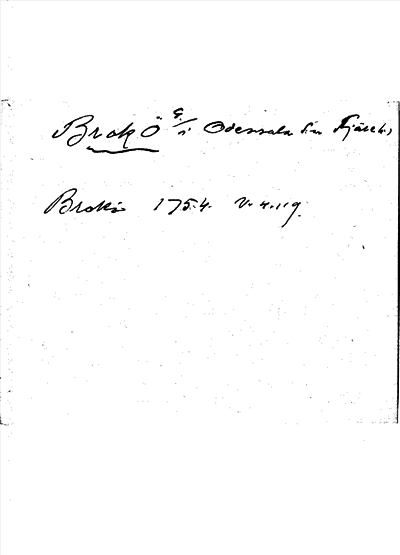 Brokö g/i Odensala sn Fjäre h.,
Brokö 1754. V. 4. 119.